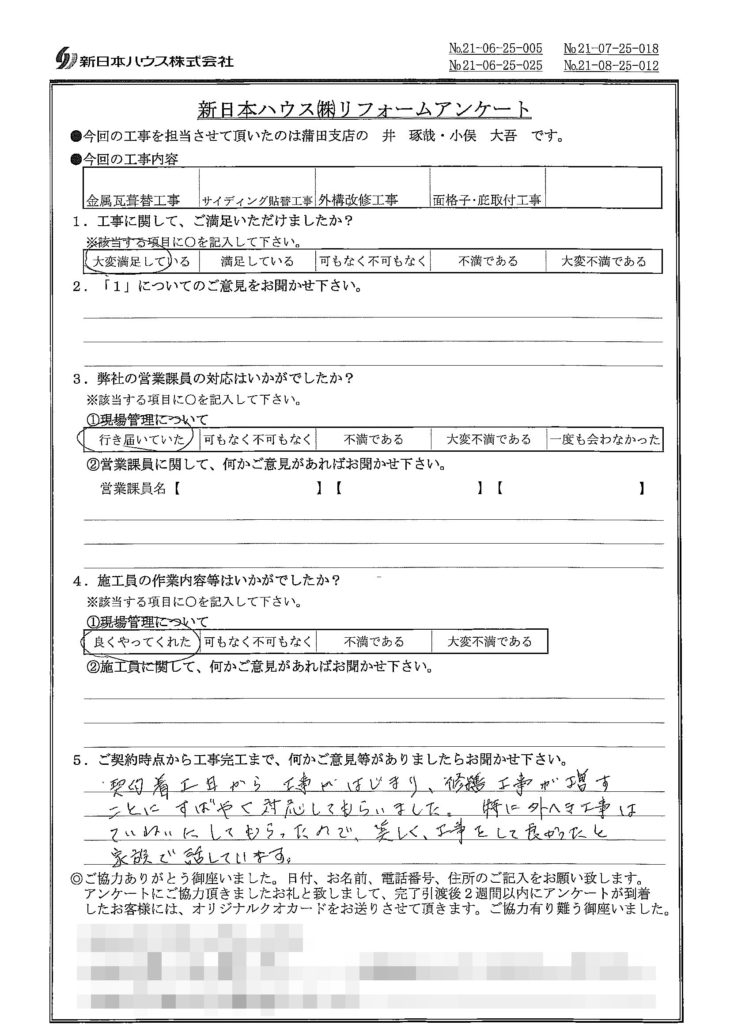 新日本ハウス株式会社
No.21-06-25-005 No.21-07-25-018
No.21-06-25-025 No.21-08-25-012
新日本ハウス㈱リフォームアンケート
●今回の工事を担当させて頂いたのは蒲田支店の 井 琢哉・小俣 大吾 です。
●今回の工事内容
金属瓦葺替工事 サイディング貼替工事 外構改修工事 面格子・庇取付工事
1．工事に関して、ご満足いただけましたか？
※該当する項目に○を記入して下さい。
大変満足している 満足している 可もなく不可もなく 不満である 大変不満である
2．「1」についてのご意見をお聞かせ下さい。
3．弊社の営業課員の対応はいかがでしたか？
※該当する項目に○を記入して下さい。
①現場管理について
行き届いていた 可もなく不可もなく 不満である 大変不満である 一度も会わなかった
②営業課員に関して、何かご意見があればお聞かせ下さい。
営業課員名【 】【 】【 】
4．施工員の作業内容等はいかがでしたか？
※該当する項目に○を記入して下さい。
①現場管理について
良くやってくれた 可もなく不可もなく 不満である 大変不満である
②施工員に関して、何かご意見があればお聞かせ下さい。
5．ご契約時点から工事完工まで、何かご意見等がありましたらお聞かせ下さい。
契約着工日から工事がはじまり、修繕工事が増す
ことにすばやく対応してもらいました。特に外へき工事は
ていねいにしてもらったので、美しく、工事をして良かったと
家族で話しています。
◎ご協力ありがとう御座いました。日付、お名前、電話番号、住所のご記入をお願い致します。
アンケートにご協力頂きましたお礼と致しまして、完了引渡後２週間以内にアンケートが到着
したお客様には、オリジナルクオカードをお送りさせて頂きます。ご協力有り難う御座いました。